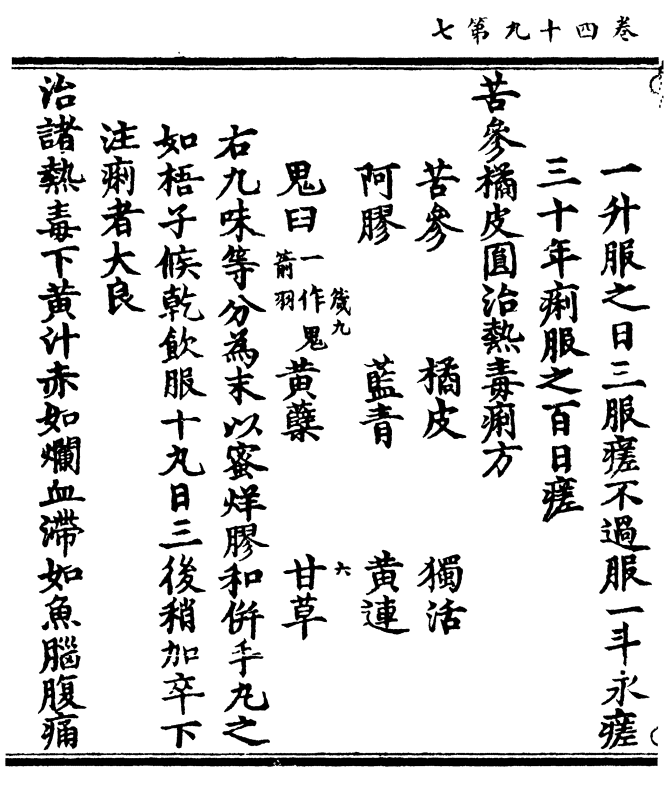 卷四十九第七
一升服之日三服瘥不過服一斗永瘥
三十年痢服之百日瘥
苦參橘皮圓治熱毒痢方
苦參 橘皮 獨活
阿膠 藍青 黄連
筏九 六
鬼曰 一作鬼箭羽 黄蘗 甘草
右九味等分為末以蜜烊膠和併手丸之
如梧子候乾飲服十丸日三後稍加卒下
注痢者大良
治諸熱毒下黄汁赤如爛血滯如魚腦腹痛